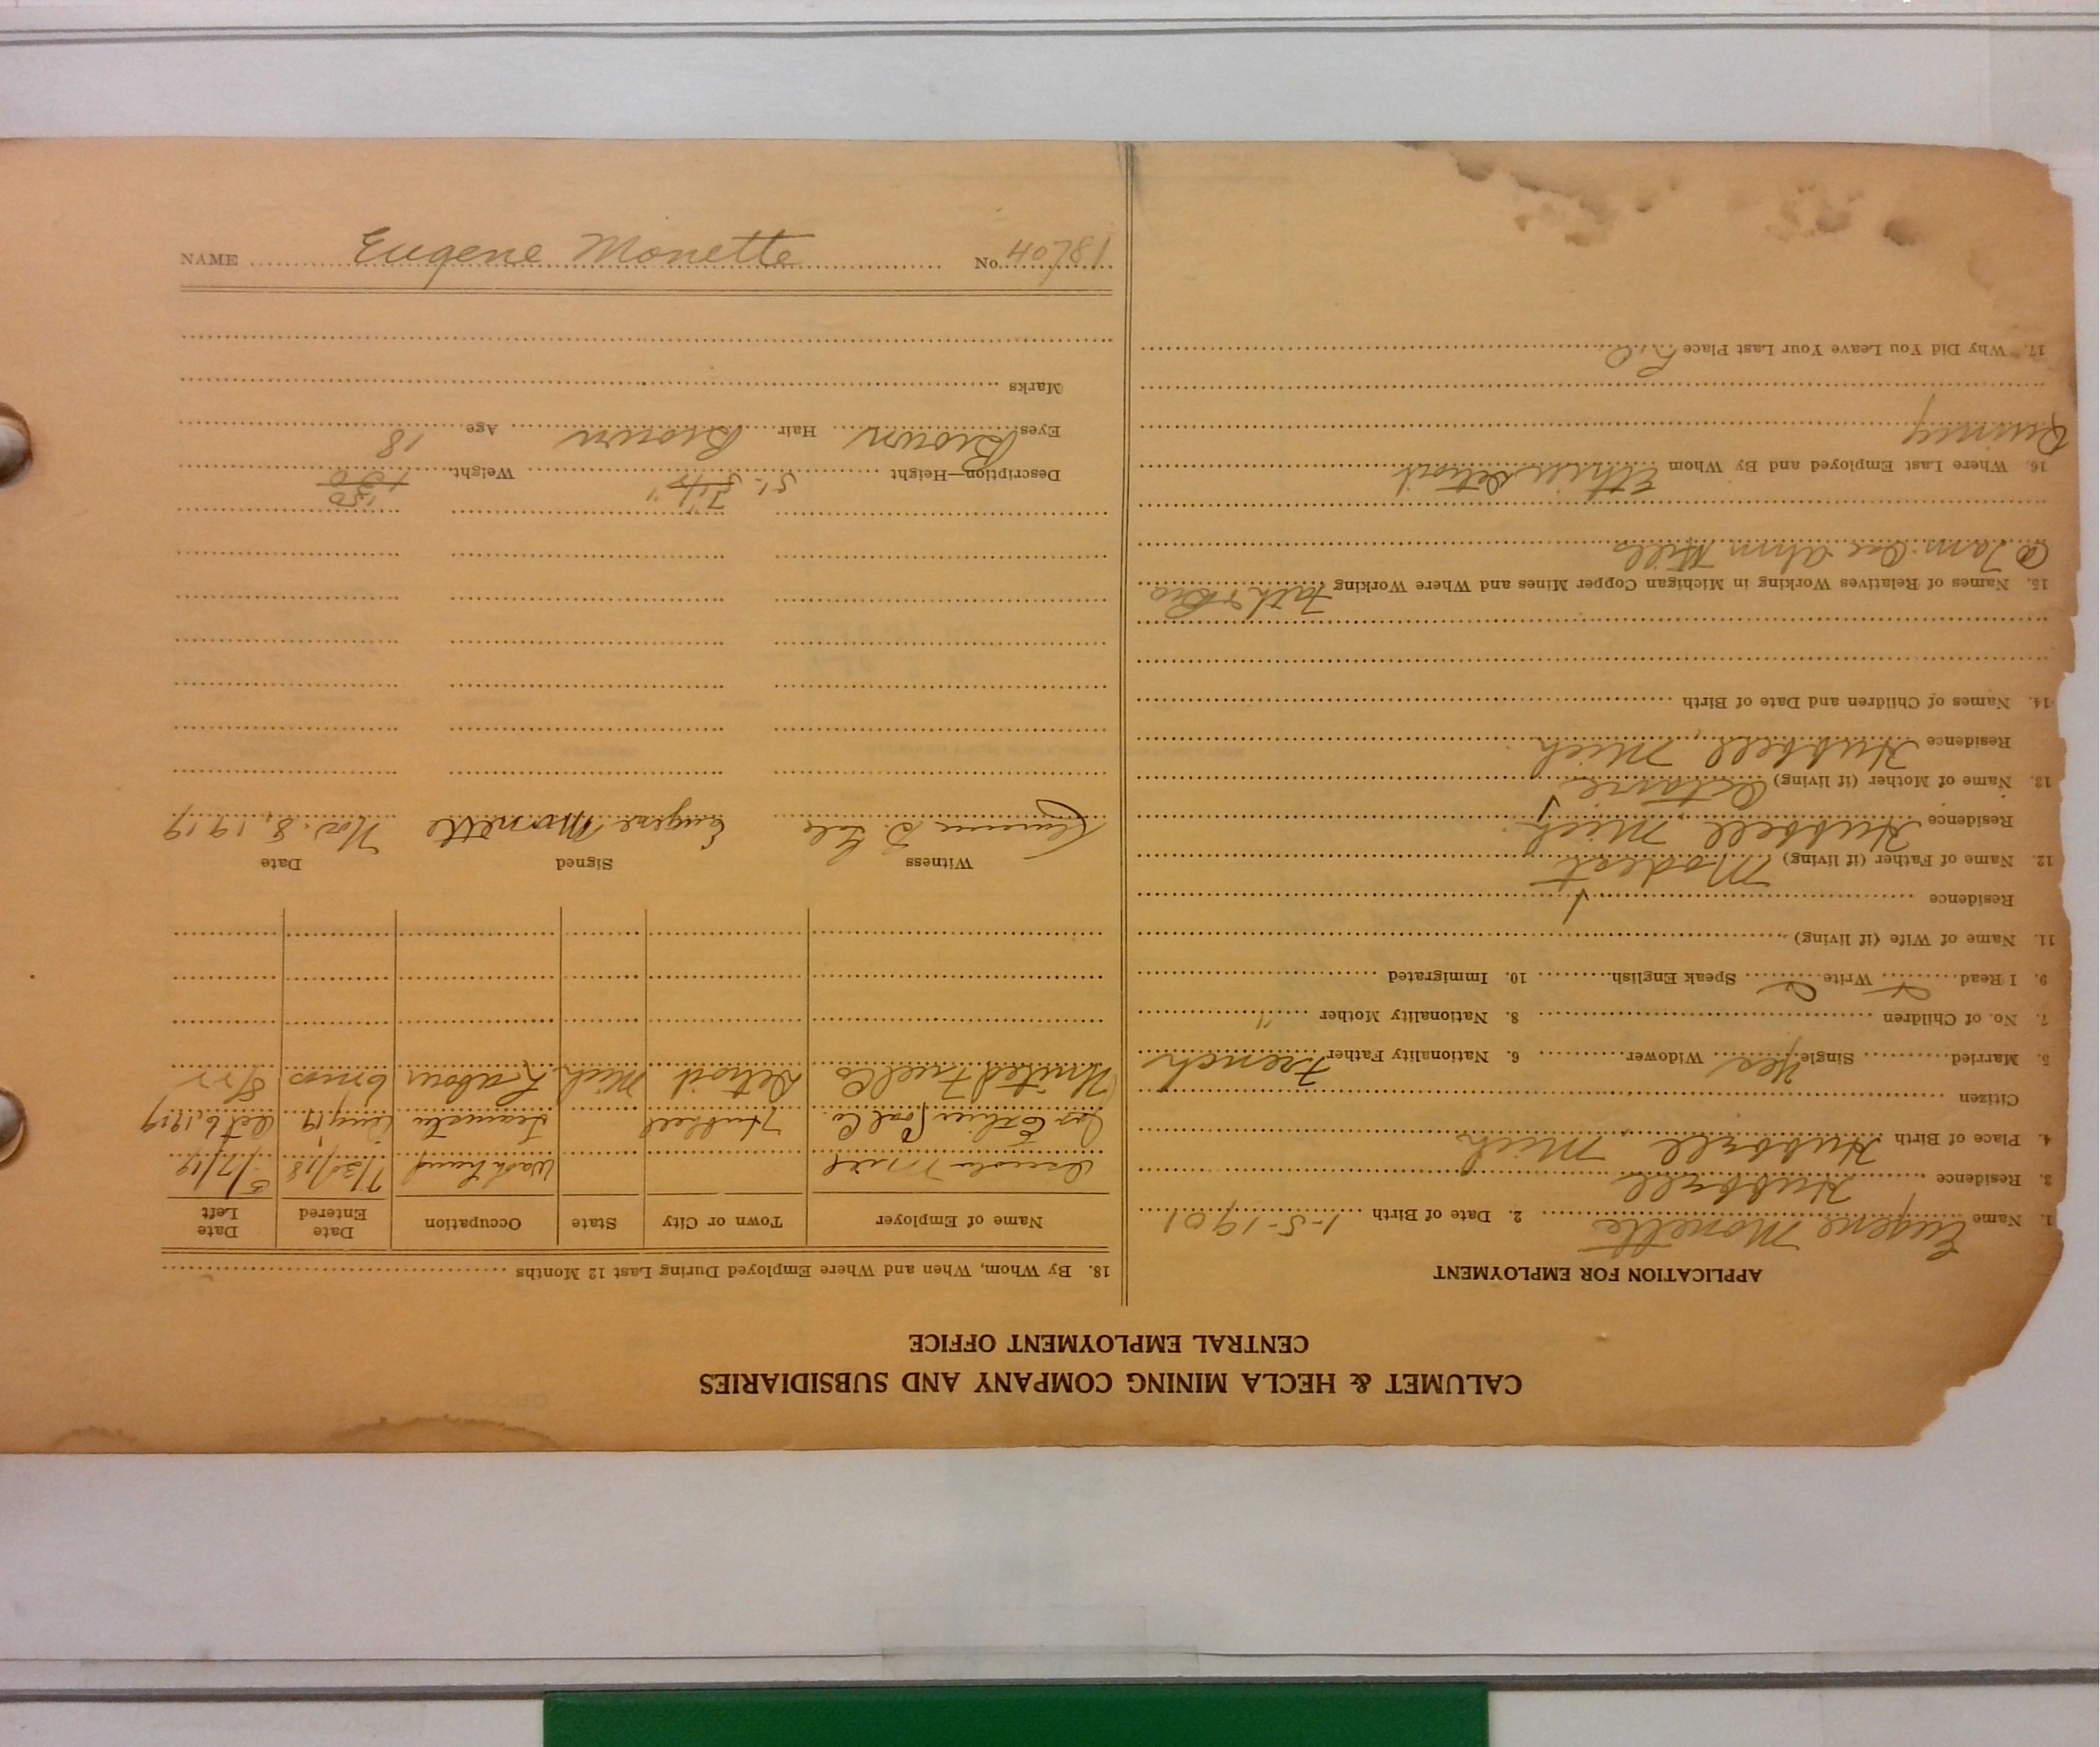 CALUMET & HECLA MINING COMPANY AND SUBSIDIARIES
CENTRAL EMPLOYMENT OFFICE
APPLICATION FOR EMPLOYMENT
1. Name Eugene Monette 2. Date of Birth 1-5-1901
3. Residence Hubbell
4. Place of Birth Hubbell, Mich
Citizen
5. Married Single Yes Widower 6. Nationality Father French
7. No. of Children 8. Nationality Mother "
9. I Read Write Speak English 10. Immigrated
11. Name of Wife (if living)
Residence
12. Name of Father (if living) Modest
Residence Hubbell, Mich
13. Name of Mother (if living)
Residence Hubbell, Mich
14. Names of Children and Date of Birth
15. Names of Relatives Working in Michigan Copper Mines and Where Working Fath & Bro
16. Where Last Employed and By Whom Detroit
17. Why Did You Leave Your Last Place
18. By Whom, When and Where Employed During Last 12 Months
Name of Employer Town or City State Occupation Date Entered Date Left
Mill Wash hand 7/30/18 5/7/19
Coal Co. Hubbell Teamster Aug 19 Oct 6, 1919
United Fuel Co Detroit Mich Labour 6 mos
Witness Signed Date
Eugene Monette Nov. 8, 1919
Description—Height 5'- Weight 150
Eyes Brown Hair Brown Age 18
Marks
NAME Eugene Monette No. 40781